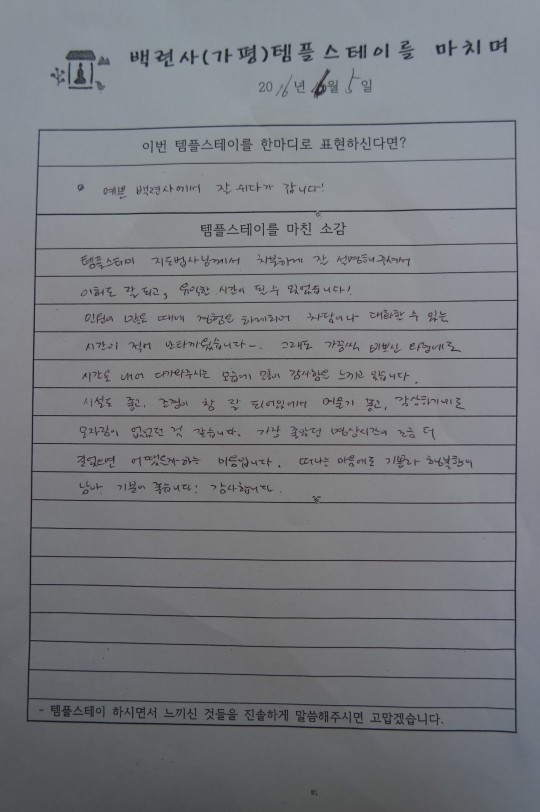 백련사(가평)템플스테이를 마치며
2016년 6월 5일
이번 템플스테이를 한마디로 표현하신다면?
예쁜 백련사에서 잘 쉬다가 갑니다!
템플스테이를 마친 소감
템플스테이 지도법사님께서 차분하게 잘 설명해주셔서
이해도 잘 되고, 유익한 시간이 될 수 있었습니다!
인원이 많은 때에 체험을 하게되어 차담이나 대화할 수 있는
시간이 적어 안타까웠습니다~. 그래도 가끔씩 바쁘신 와중에도
시간을 내어 다가와주시는 모습에 감사함을 느끼고 갑니다.
시설도 좋고, 조경이 참 잘 되어있어서 머물기 좋고, 감상하기에도
모자람이 없었던 것 같습니다. 가장 좋았던 명상시간이 조금 더
길었으면 어땠을까하는 마음입니다. 떠나는 마음에도 기쁨과 행복함이
남아 기분이 좋습니다! 감사합니다.
- 템플스테이 하시면서 느끼신 것들을 진솔하게 말씀해주시면 고맙겠습니다.